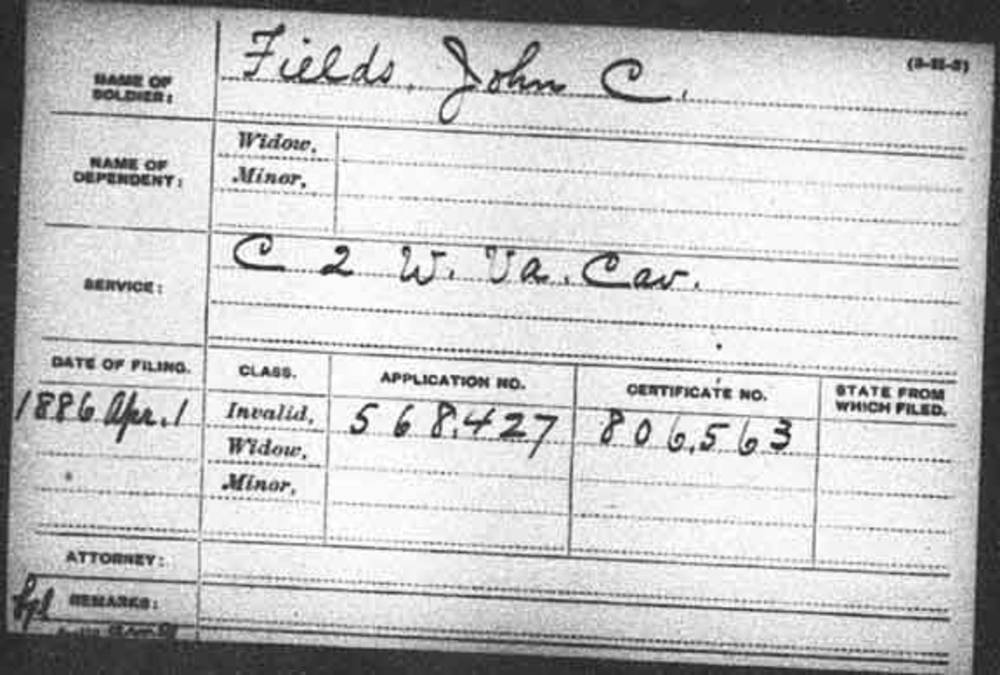 Fields, John C.
NAME OF
SOLDIER:
Widow,
NAME OF
DEPENDENT:
Minor,
C 2 W. Va. Cav.
SERVICE:
DATE OF FILING. CLASS. APPLICATION NO. CERTIFICATE NO. STATE FROM
WHICH FILED.
1886 Apr. 1 Invalid, 568.427 806.563
Widow,
Minor,
ATTORNEY:
REMARKS: